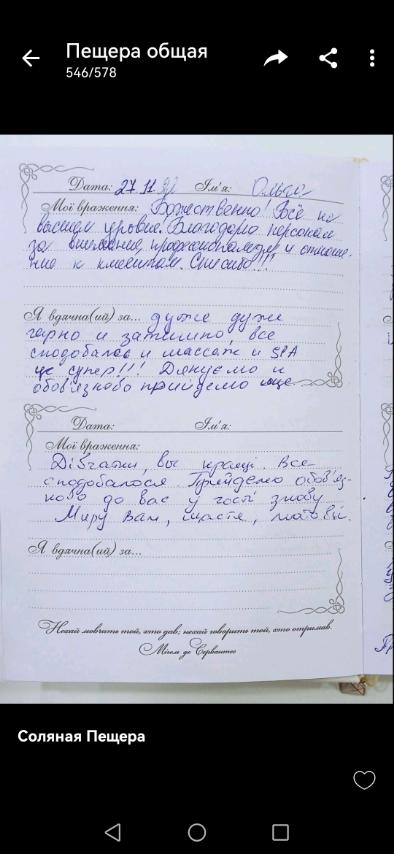 Пещера общая
546/578
Дата: 27.11 Ім'я: Ольга
Мої враження: Божественно! Всё на
высшем уровне. Благодарю персонал
за внимание, профессионализм и отноше-
ние к клиентам. Спасибо!!!
Я вдячна(ий) за... дуже дуже
гарно и затишно, все
сподобалос и массаж и SPA
це супер!!! Дякуємо и
обов'язково прийдемо ище
Дата: Ім'я:
Мої враження:
Дівчатки, вы кращі. Все
сподобалося. Прийдемо обов'яз-
ково до вас у гості знову
Миру Вам, щастя, любові.
Я вдячна(ий) за...
Нехай мовчить той, хто дав; нехай говорить той, хто отримав.
Мігель де Сервантес
Соляная Пещера